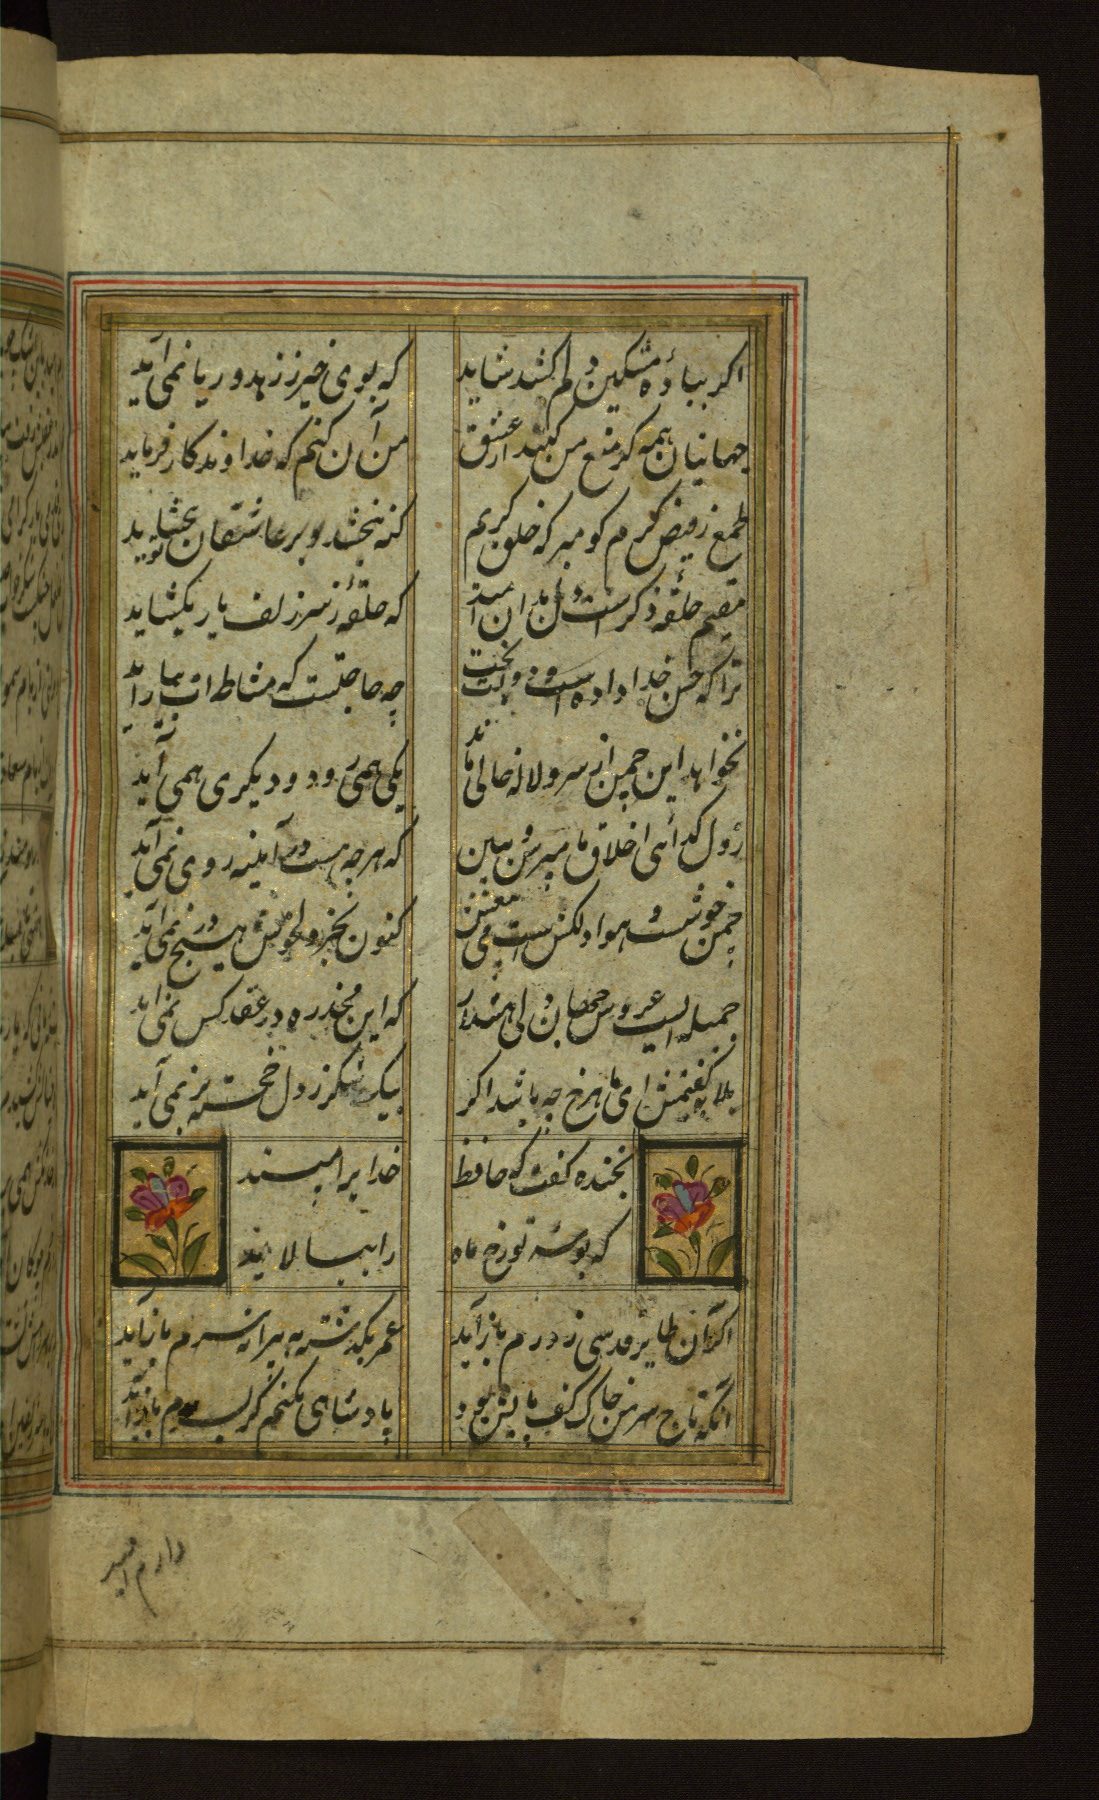 اگر بباده مشکین دلم کشد شاید که بوی خیر ز زهد و ریا نمی آید
جهانیان همه گر منع من کنند از عشق من آن کنم که خداوندکار فرماید
طمع ز فیض کرم کو مبر که خلق کریم کنه ببخشد و بر عاشقان ببخشاید
مقیم حلقه ذکر است دل بدان امید که حلقهٔ ز سر زلف یار بکشاید
ترا که حسن خداداده است و بخت چه حاجتست که مشاطه ات بیاراید
نخواهد این چمن از سرو و لاله خالی ماند یکی همی رود و دیگری همی آید
ز دل کدائی اخلاق ما مپرس و ببین که هر چه هست در آینه روی نمی آید
چمن خوشست و هوا دلکش است و می بیغش کنون بجز دل خوش هیچ در نمی آید
جمیله ایست عروس جهان ولی هشدار که این مخدره در عقد کس نمی آید
بلابه کفتمش ای ماه رخ چه باشد اکر بیک شکر ز تو دل خسته
بخنده کفت که حافظ خدایرا مپسند
که بوسه تو رخ ماه را بیالاید
اکر آن طایر قدسی ز درم باز آید عمر بکذشته به پیرانه سرم باز آید
آنکه تاج سر من خاک کف پایش بود پادشاهی بکنم کر بسرم باز آید
دارم امید